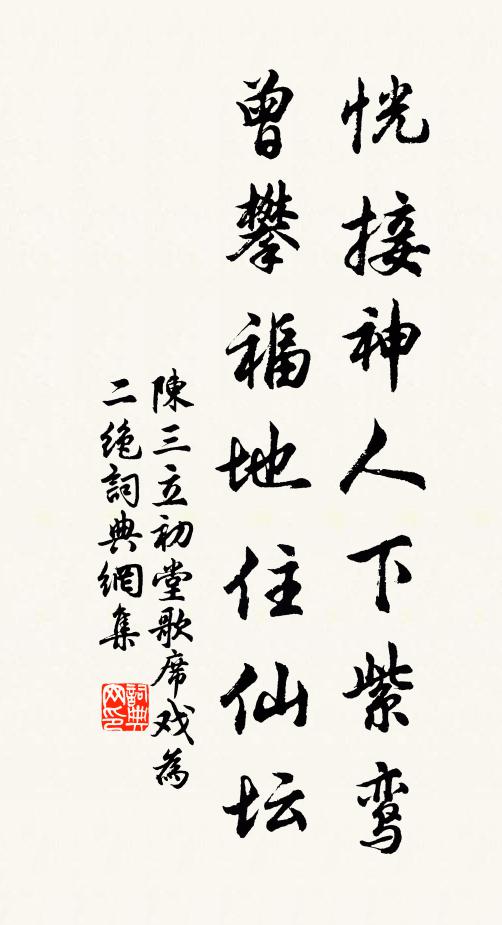 恍接神人下紫鸾
曾攀福地住仙坛
陳三立初堂歌席戏為
二绝詞典網集
詞典网印